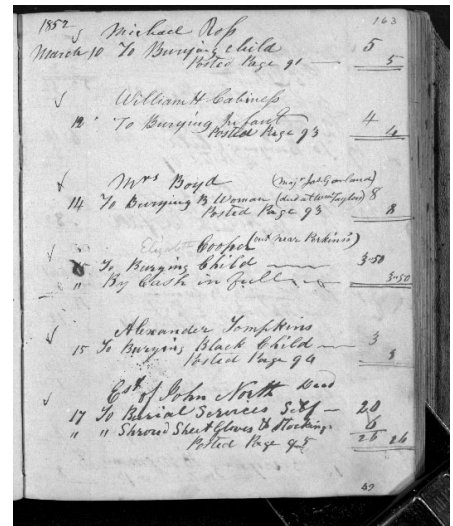 1852 163
Michael Ross
March 10 To Burying child 5
Posted Page 91 — 5
William H Cabiness
12 To Burying Infant 4
Posted Page 93 4
Mrs Boyd (Majr Jas Garland)
14 To Burying B Woman (died at Wm Taylor) 8
Posted Page 93 8
Elizabeth Cooper (out near Perkins)
15 To Burying Child 3-50
" By Cash in full 3-50
Alexander Tompkins
15 To Burying Black Child 3
Posted Page 94 3
Est of John North Decd
17 To Burial Services Self — 20
" " Shroud Sheet Gloves & Stockings 6
Posted Page 95 26 26